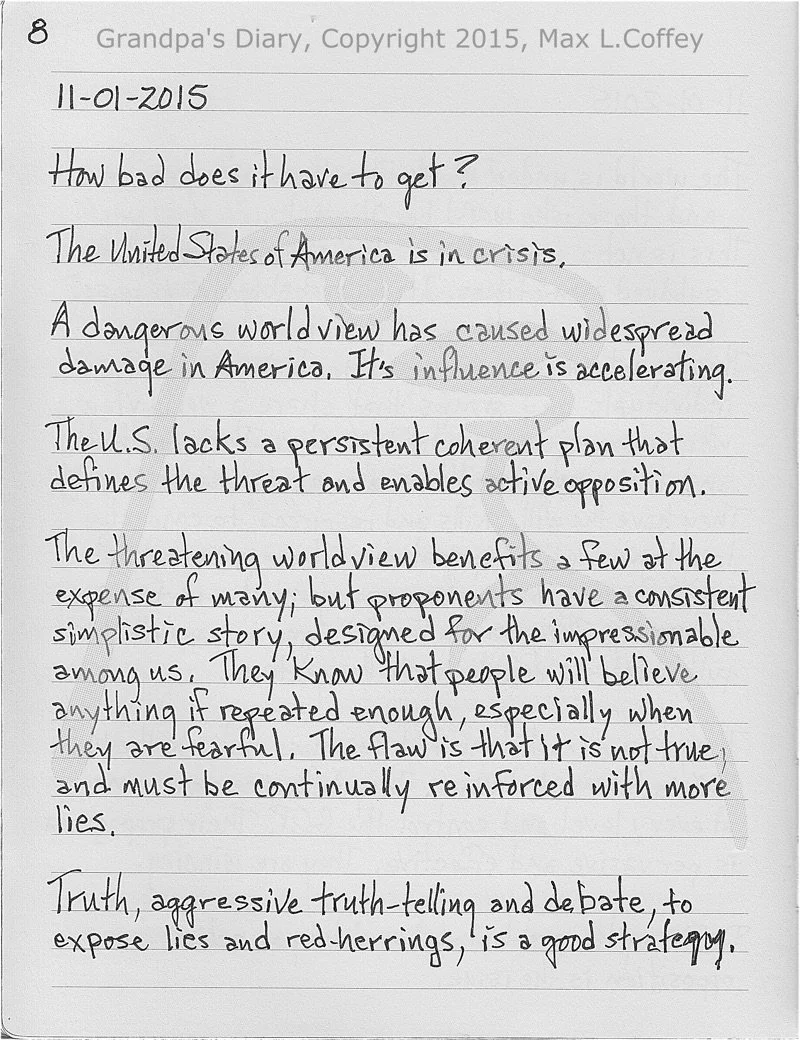 8
Grandpa's Diary, Copyright 2015, Max L.Coffey
11-01-2015
How bad does it have to get?
The United States of America is in crisis.
A dangerous world view has caused widespread
damage in America. It's influence is accelerating.
The U.S. lacks a persistent coherent plan that
defines the threat and enables active opposition.
The threatening world view benefits a few at the
expense of many; but proponents have a consistent
simplistic story, designed for the impressionable
among us. They know that people will believe
anything if repeated enough, especially when
they are fearful. The flaw is that it is not true,
and must be continually reinforced with more
lies.
Truth, aggressive truth-telling and debate, to
expose lies and red-herrings, is a good strategy.